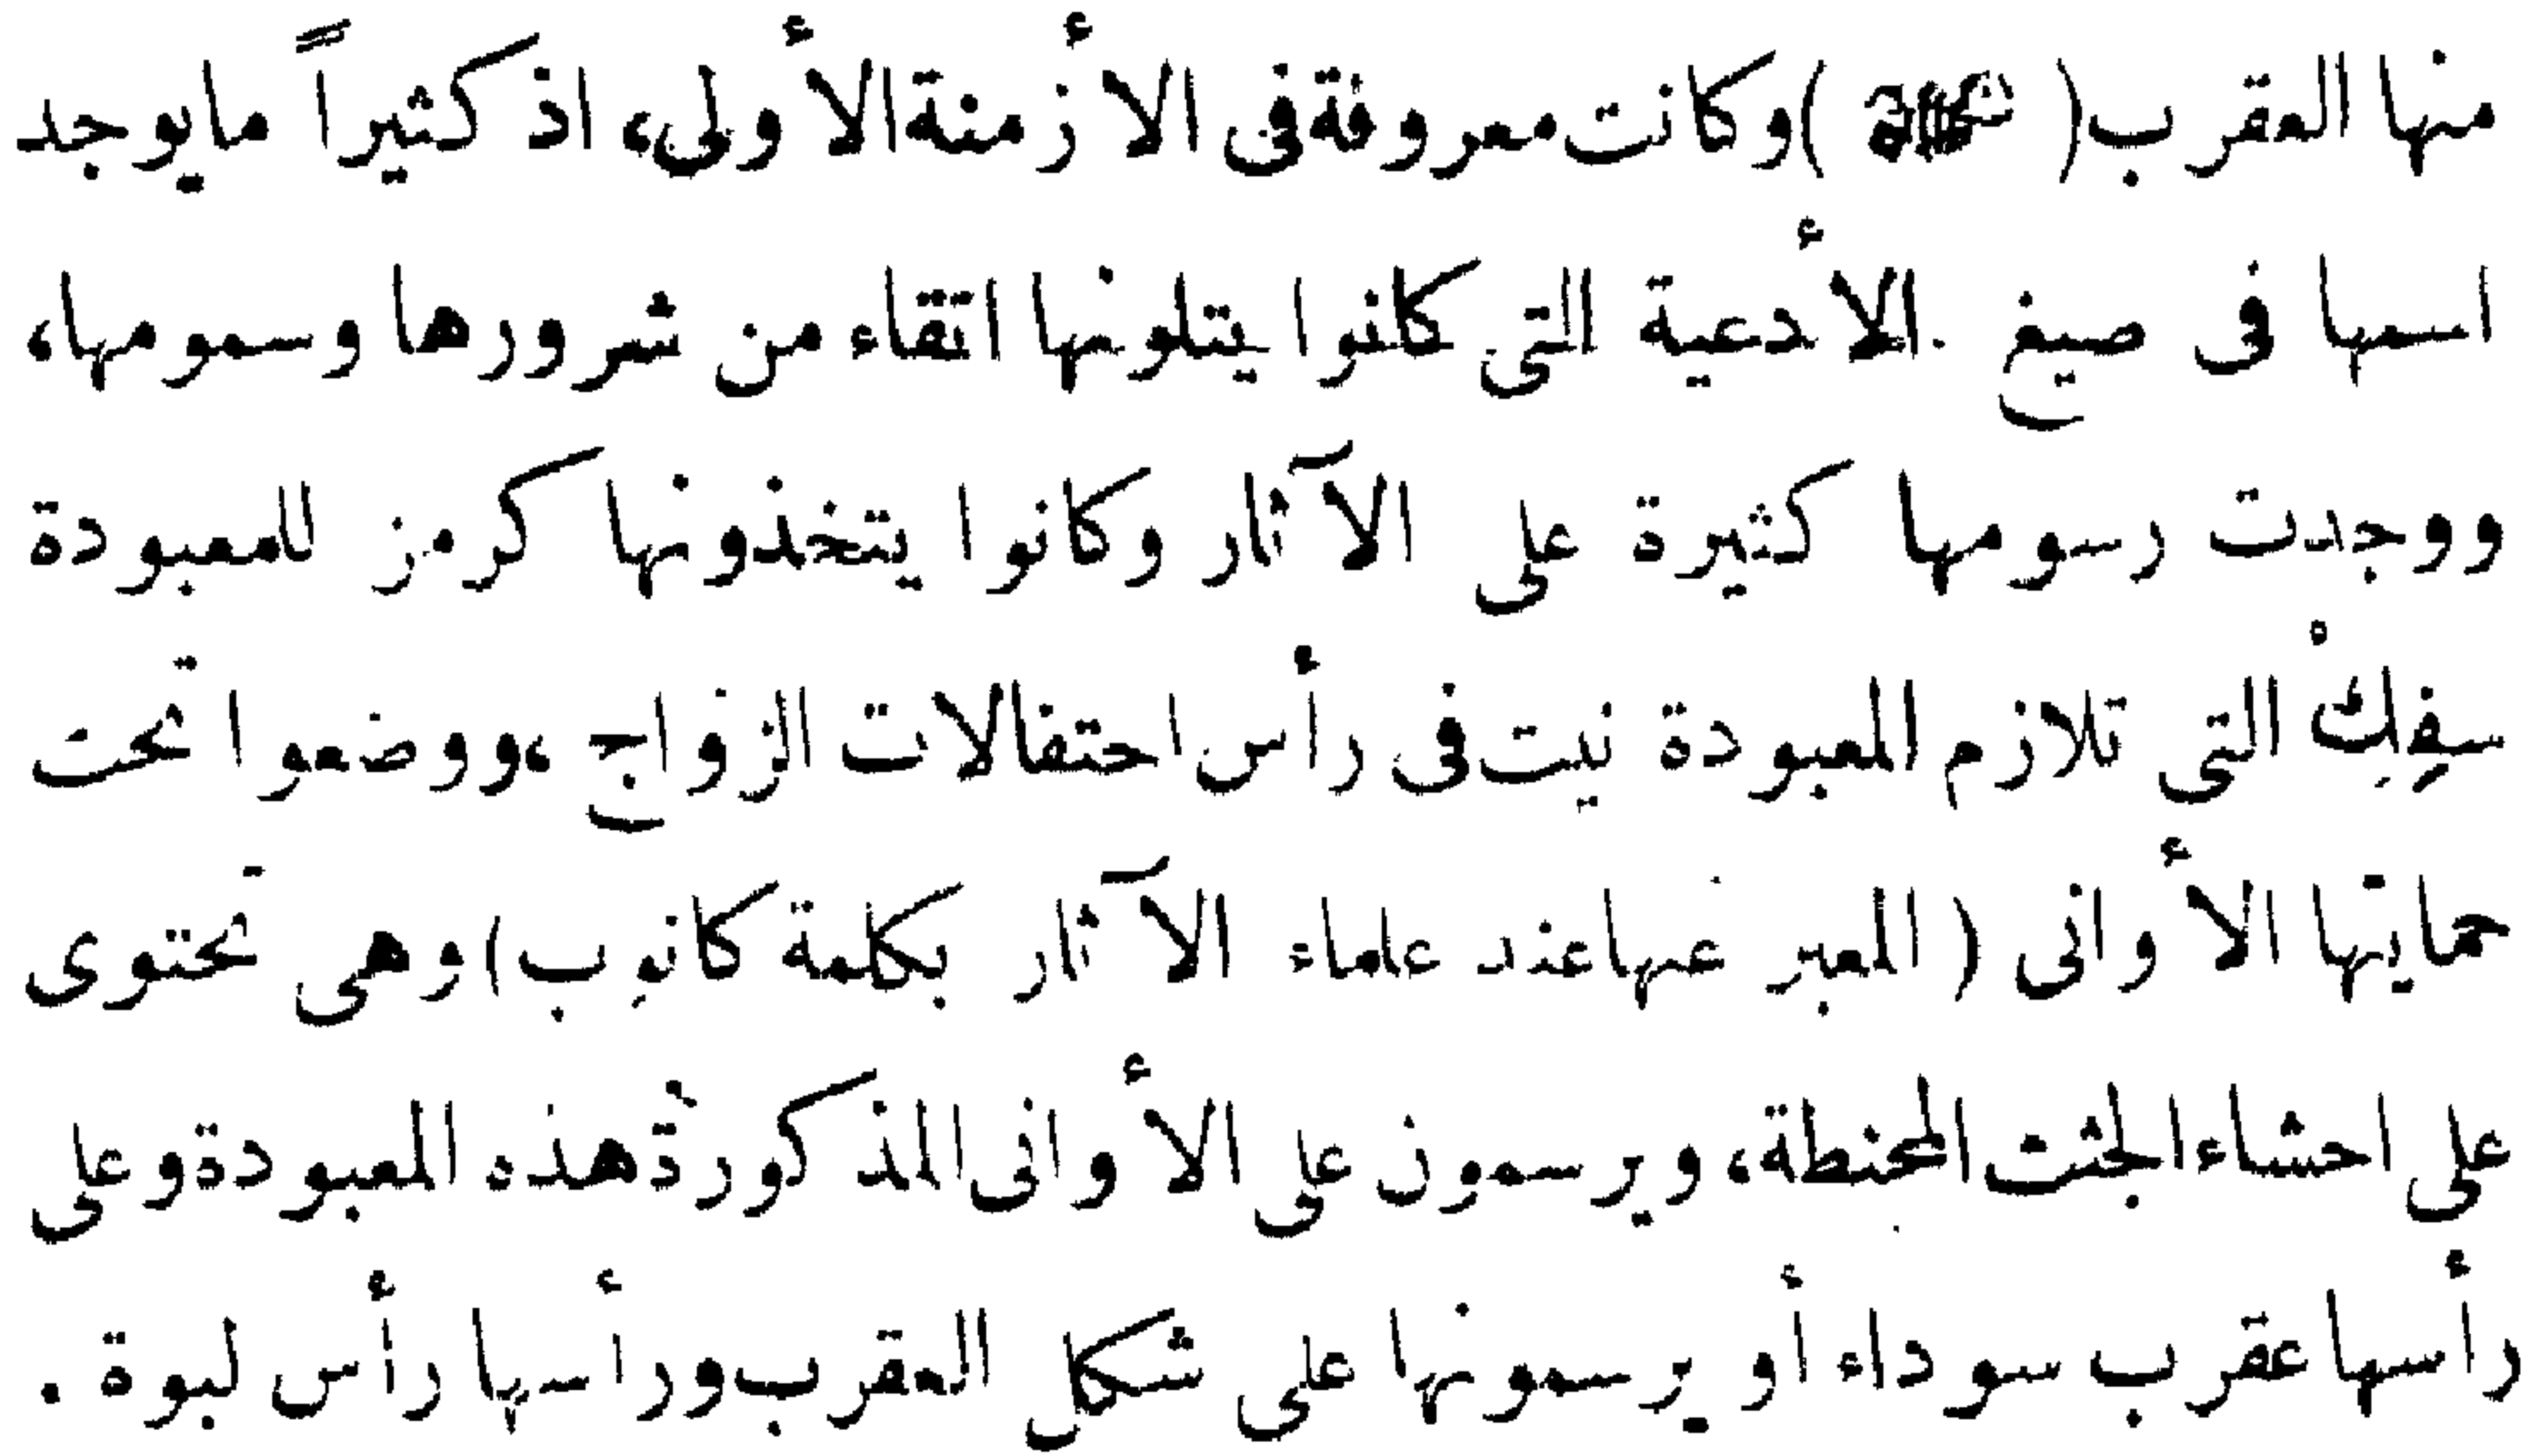 منها العقرب ( ) وكانت معروفة فى الأزمنة الأولى، اذ كثيراً مايوجد
اسمها فى صيغ الأدعية التى كانوا يتلونها اتقاء من شرورها وسمومها،
ووجدت رسومها كثيرة على الآثار وكانوا يتخذونها كرمز للمعبودة
سِفِلِكْ التى تلازم المعبودة نيت فى رأس احتفالات الزواج ،ووضعوا تحت
حمايتها الأوانى ( المعبر عنها عند علماء الآثار بكلمة كانوب) وهى تحتوى
على احشاء الجثث المحنطة، ويرسمون على الأوانى المذكورة هذه المعبودة وعلى
رأسها عقرب سوداء أو يرسمونها على شكل العقرب ورأسها رأس لبوة .